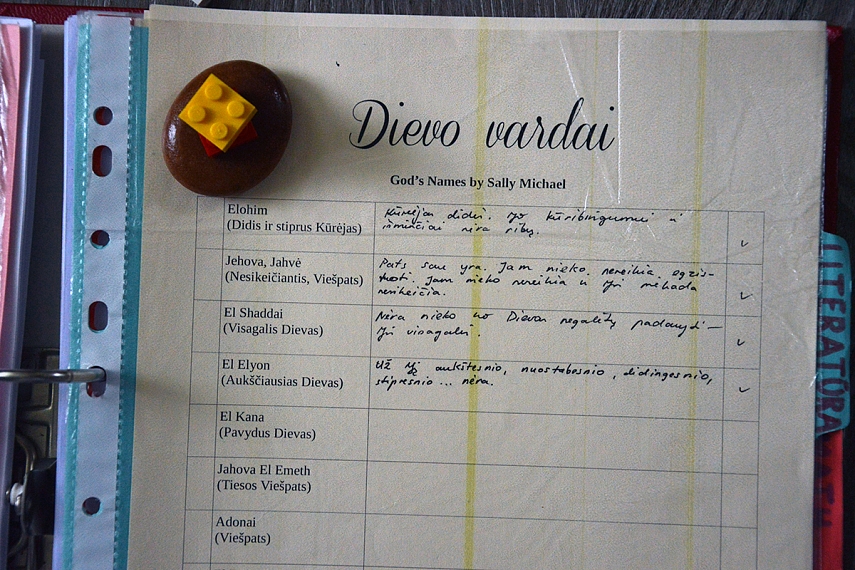 Dievo vardai
God's Names by Sally Michael
Elohim
(Didis ir stiprus Kūrėjas)
Kūrėjas didis. Jo kūribingumui ir
išminčiai nėra ribų.
Jehova, Jahvė
(Nesikeičiantis, Viešpats)
Pats sau yra. Jam nieko nereikia egzis-
tuoti. Jam nieko nereikia ir Jis niekada
nesikeičia.
El Shaddai
(Visagalis Dievas)
Nėra nieko ko Dievas negalėtų padaryti –
Jis visagalis.
El Elyon
(Aukščiausias Dievas)
Už Jį aukštesnio, nuostabesnio, didingesnio,
stipresnio ... nėra.
El Kana
(Pavydus Dievas)
Jahova El Emeth
(Tiesos Viešpats)
Adonai
(Viešpats)
LITERATŪRA
MATH